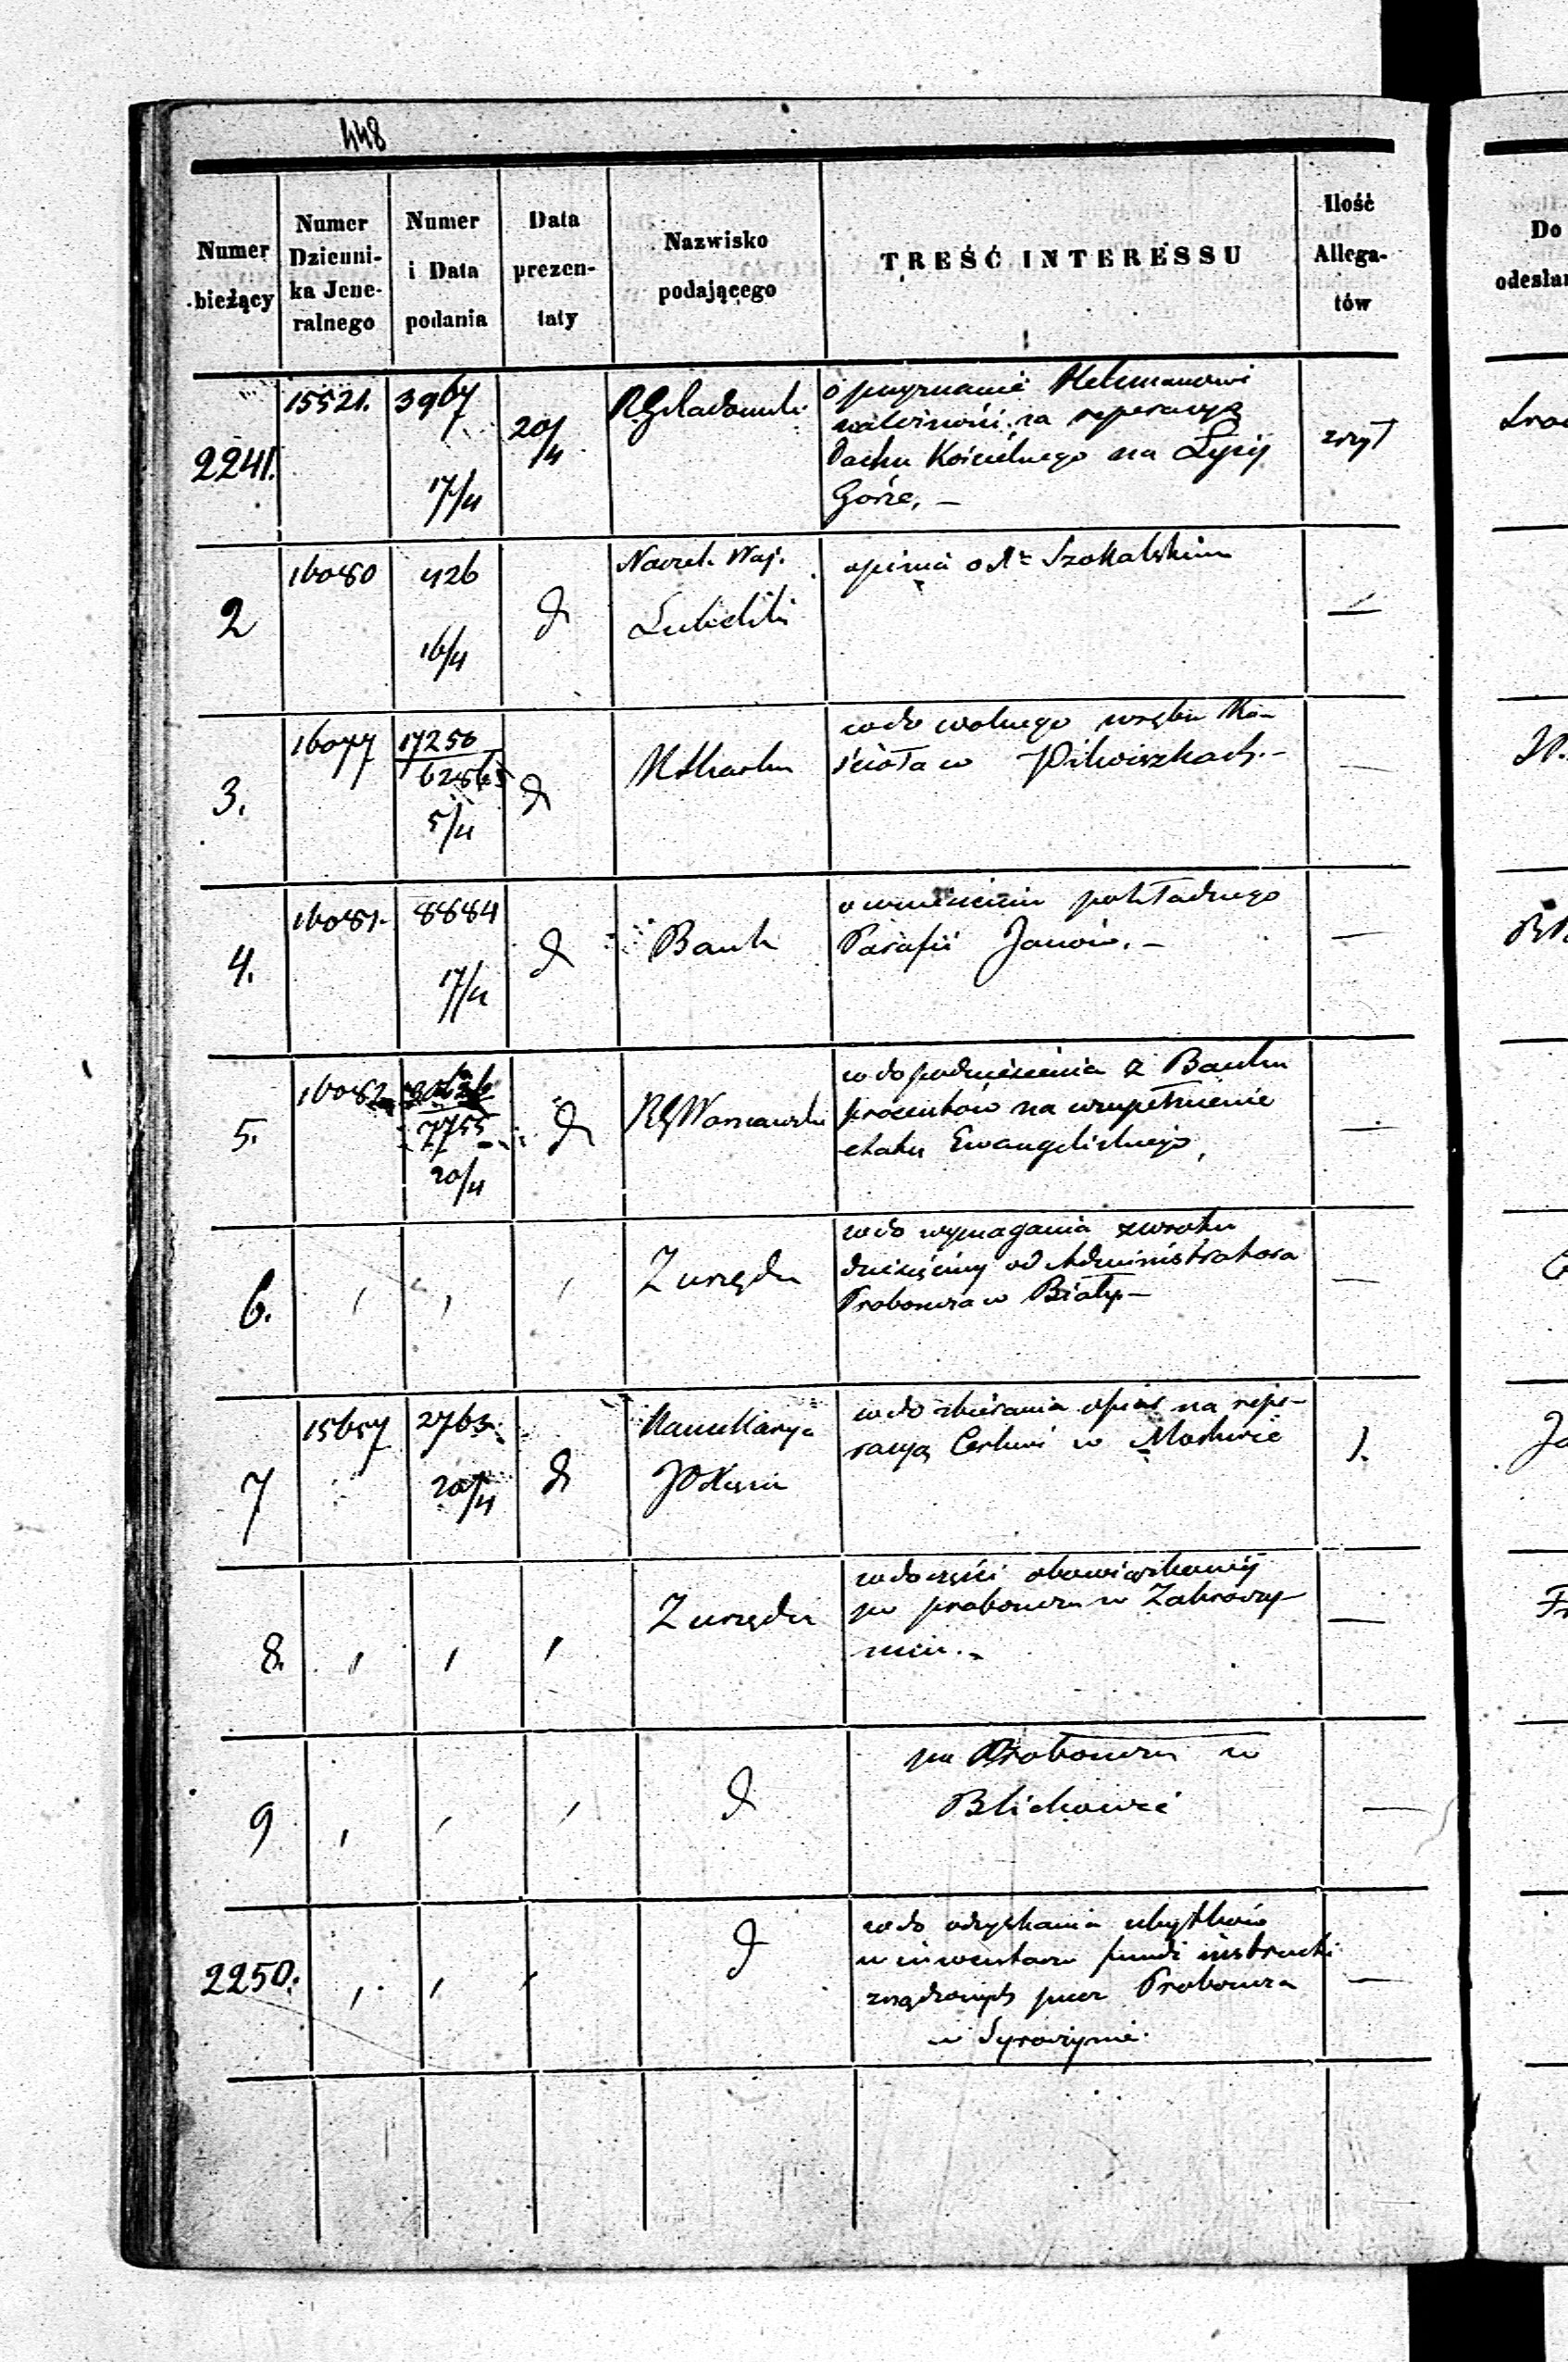 448
Numer bieżący
Numer Dzienni-ka Jene-ralnego
Numer i Data podania
Data prezen-taty
Nazwisko podającego
TREŚĆ INTERESSU
Ilość Allega-tów
Do
odesłan
2241. 15521. 3967 17/4 20/4 RG Radomski
o przyznanie
na reperacyą
Dachu Kościelnego na Łysej
Górze, —
zszyt
2 16080 426 16/4 d Naczel. Woj.
Lubelski
opinia o Szokalskim
—
3. 16077 17250
5/4 d
co do wolnego wrębu Ko-
ścioła w Pilwiszkach. —
—
4. 16081. 8884 17/4 d Bank
o umieszczeniu
Parafii Janów. —
—
5. 16082 7755
20/4 d RG Warszawski
co do podniesienia z Banku
procentów na uzupełnienie
etatu Ewangelickiego,
—
6. Z urzędu
co do wymagania zwrotu
dziesięciny od Administratora
Probostwa w Białej —
—
7 15657 2763. 20/4 d Kancellarya
JO Xięcia
co do zbierania ofiar na repe-
racyą Cerkwi w Moskwie
1.
8. Z urzędu
co do części obowiązkowej
po proboszczu w Zakroczy-
miu. —
—
9 d
po Proboszczu w
Blichowie
—
2250. d
co do odzyskania ubytków
w inwentarzu fundi instructi
zrządzonych przez Proboszcza
w
—